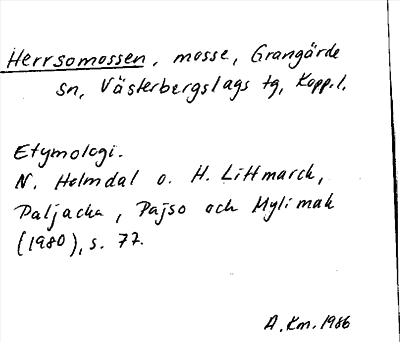 Herrsomossen, mosse, Grangärde
sn, Västerbergslags tg, Kopp.l.
Etymologi.
N. Holmdal o. H. Littmarck,
Paljacka, Pajso och Mylimak
(1980), s. 77.
A. Km. 1986